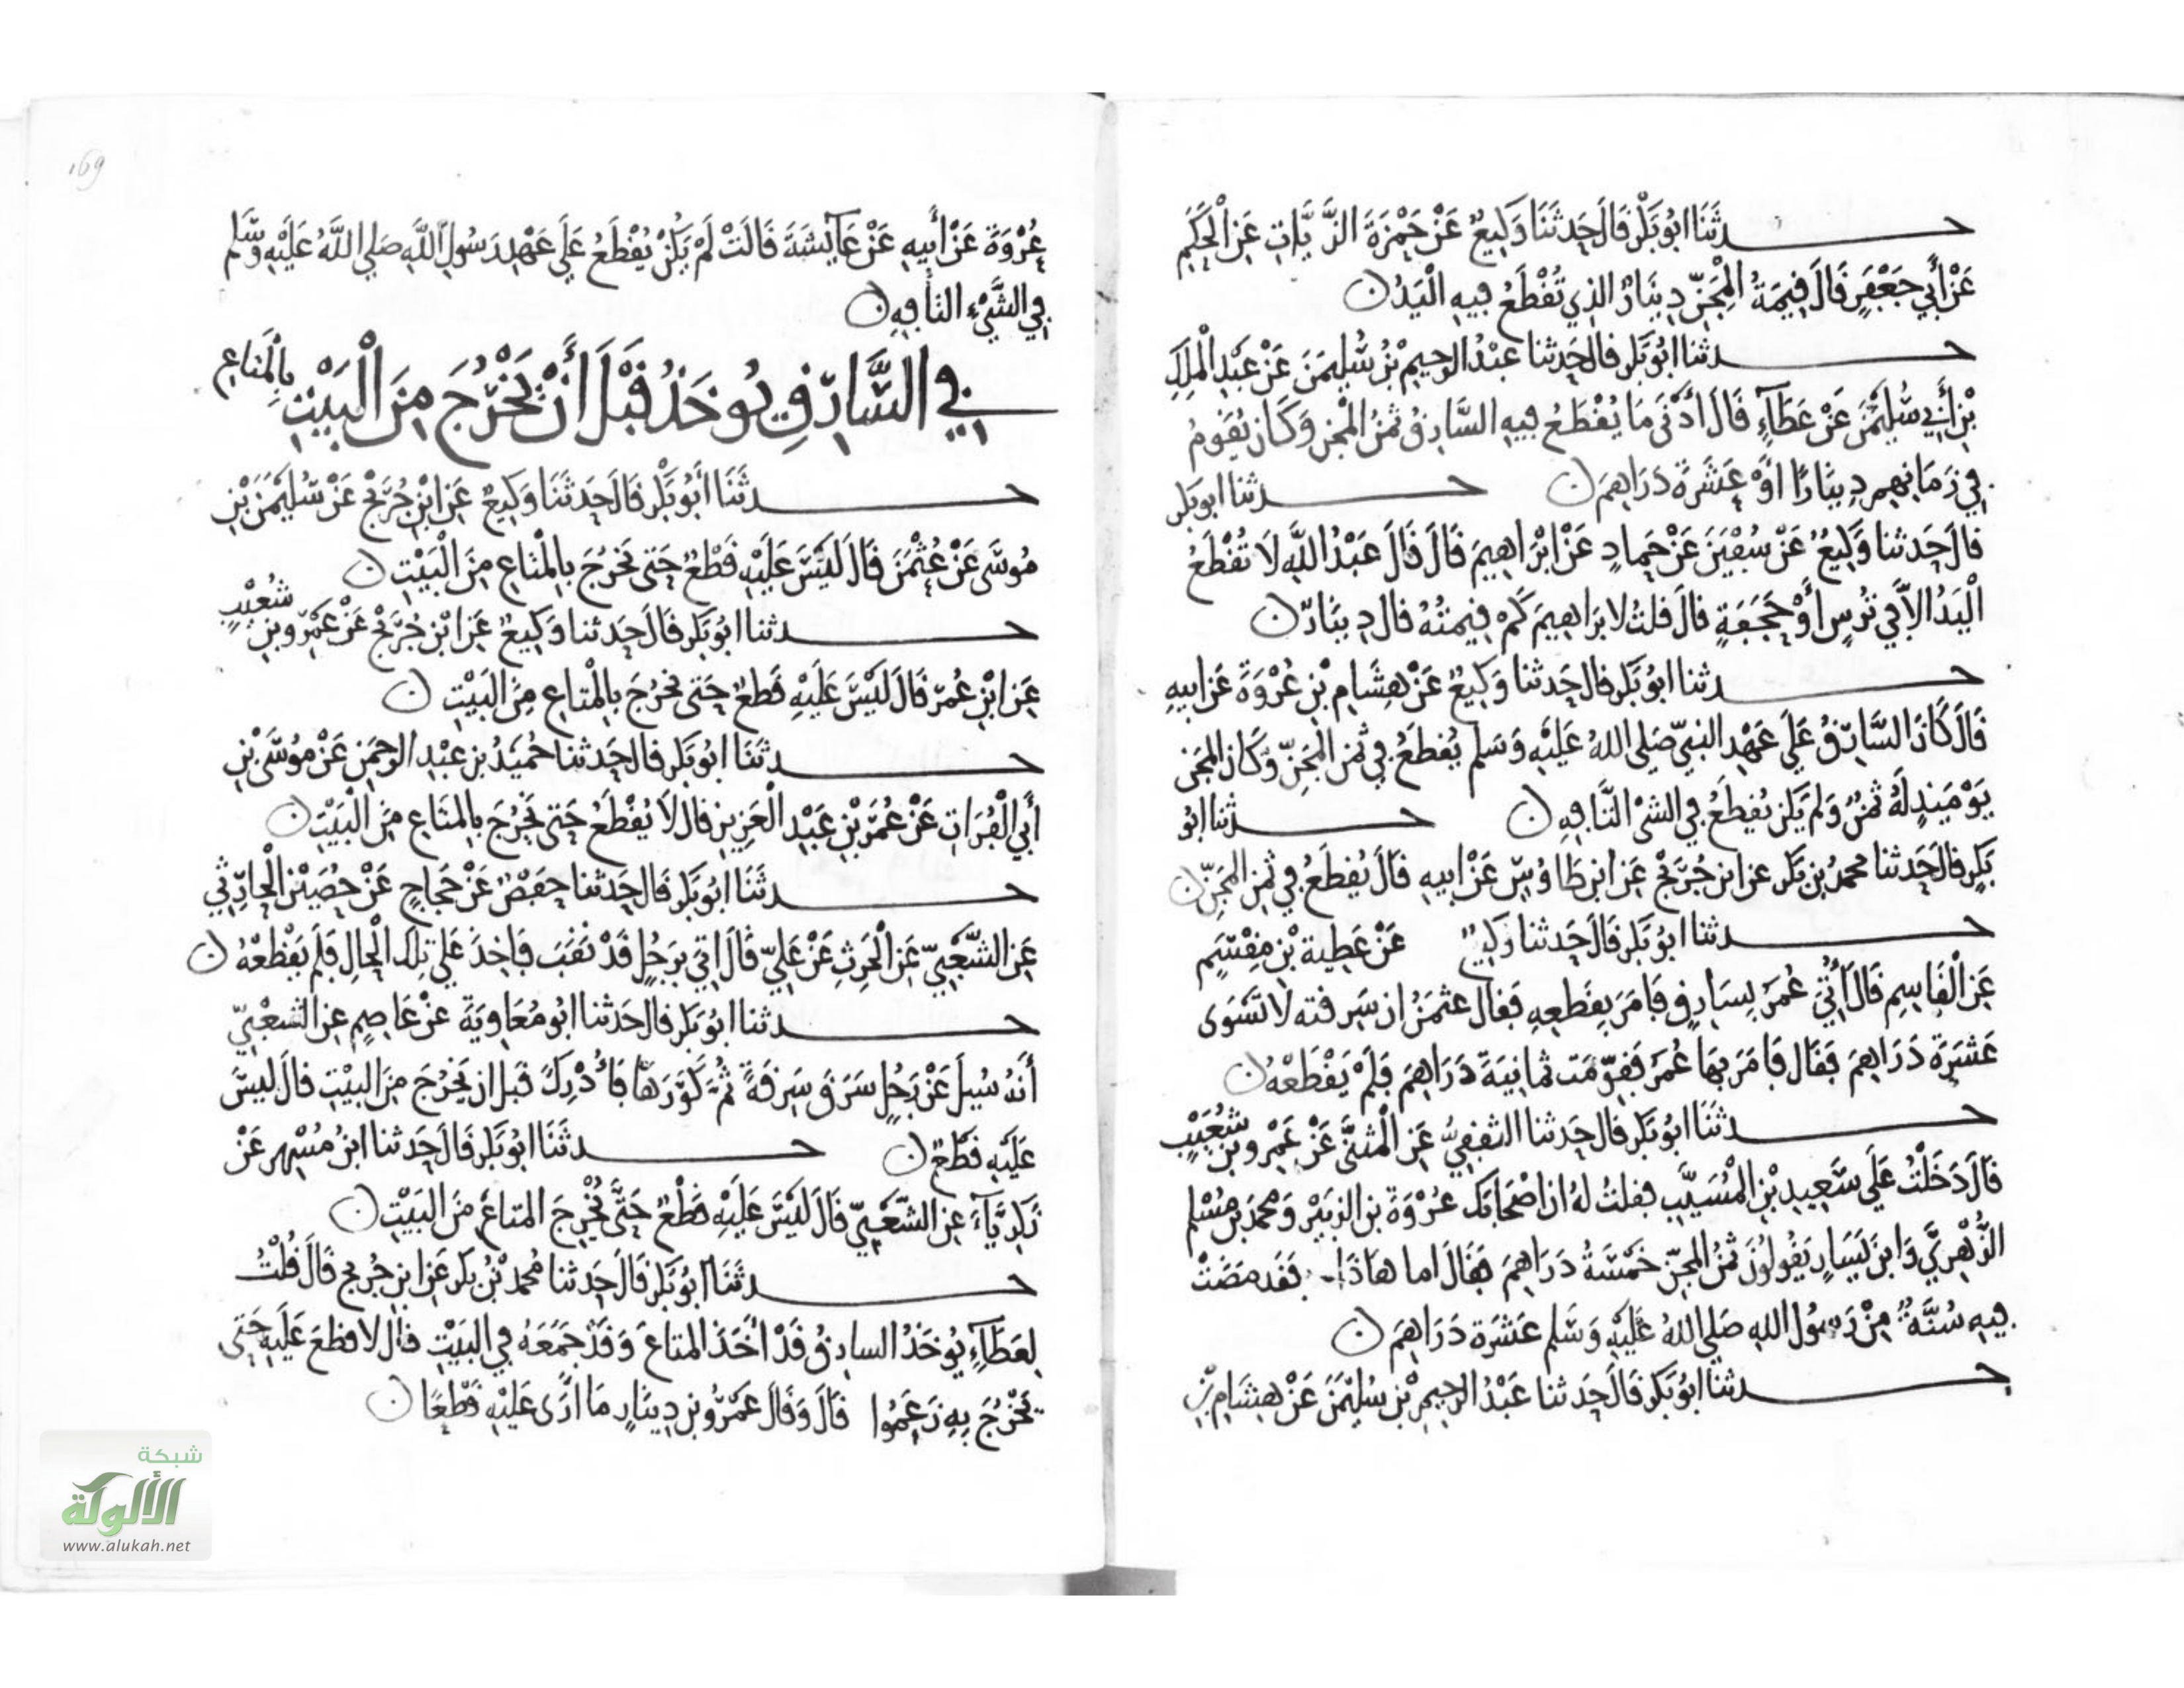 حدثنا ابو بكر قال حدثنا وكيع عن حمزة الزيات عن الحكم
عن أبي جعفر قال قيمة المجن دينار الذي تقطع فيه اليد
حدثنا ابو بكر قال حدثنا عبد الرحيم بن سليمن عن عبد الملك
بن أبي سليمن عن عطاء قال أدنى ما يقطع فيه السارق ثمن المجن وكان يقوم
في زمانهم دينارا او عشرة دراهم حدثنا ابو بكر
قال حدثنا وكيع عن سفين عن حماد عن ابراهيم قال قال عبد الله لا تقطع
اليد الا في ترس أو حجفة قال قلت لابراهيم كم قيمته قال دينار
حدثنا ابو بكر قال حدثنا وكيع عن هشام بن عروة عن ابيه
قال كان السارق على عهد النبي صلى الله عليه وسلم يقطع في ثمن المجن وكان المجن
يوميذ له ثمن ولم يكن يقطع في الشئ التافه حدثنا ابو
بكر قال حدثنا محمد بن بكر عن ابن جريج عن ابن طاوس عن ابيه قال يقطع في ثمن المجن
حدثنا ابو بكر قال حدثنا وكيع عن عطية بن مقسم
عن القاسم قال أتي عمر بسارق فامر بقطعه فقال عثمن ان سرقته لا تسوى
عشرة دراهم فقال فامر بها عمر فقومت ثمانية دراهم فلم يقطعه
حدثنا ابو بكر قال حدثنا الثقفي عن المثنى عن عمرو بن شعيب
قال دخلت على سعيد بن المسيب فقلت له ان اصحابك عروة بن الزبير ومحمد بن مسلم
الزهري وابن يسار يقولون ثمن المجن خمسة دراهم فقال اما هاذا فقد مضت
فيه سنة من رسول الله صلى الله عليه وسلم عشرة دراهم
حدثنا ابو بكر قال حدثنا عبد الرحيم بن سليمن عن هشام بن
169
عروة عن أبيه عن عايشة قالت لم يكن يقطع على عهد رسول الله صلى الله عليه وسلم
في الشيء التافه
في السارق يوخذ قبل أن يخرج من البيت بالمتاع
حدثنا أبو بكر قال حدثنا وكيع عن ابن جريج عن سليمن بن
موسى عن عثمن قال ليس عليه قطع حتى يخرج بالمتاع من البيت
حدثنا ابو بكر قال حدثنا وكيع عن ابن جريج عن عمرو بن شعيب
عن ابن عمر قال ليس عليه قطع حتى يخرج بالمتاع من البيت
حدثنا ابو بكر قال حدثنا حميد بن عبد الرحمن عن موسى بن
أبي الفرات عن عمر بن عبد العزيز قال لا يقطع حتى يخرج بالمتاع من البيت
حدثنا ابو بكر قال حدثنا حفص عن حجاج عن حصين الحارثي
عن الشعبي عن الحرث عن علي قال اتي برجل قد نقب فاخذ على تلك الحال فلم يقطعه
حدثنا ابو بكر قال حدثنا ابو معاوية عن عاصم عن الشعبي
أنه سيل عن رجل سرق سرقة ثم كورها فأدرك قبل ان يخرج من البيت قال ليس
عليه قطع حدثنا ابو بكر قال حدثنا ابن مسهر عن
زكرياء عن الشعبي قال ليس عليه قطع حتى يخرج المتاع من البيت
حدثنا ابو بكر قال حدثنا محمد بن بكر عن ابن جريج قال قلت
لعطاء يوخذ السارق قد أخذ المتاع وقد جمعه في البيت قال لا قطع عليه حتى
يخرج به زعموا قال وقال عمرو بن دينار ما أرى عليه قطعا
شبكة
الألوكة
www.alukah.net